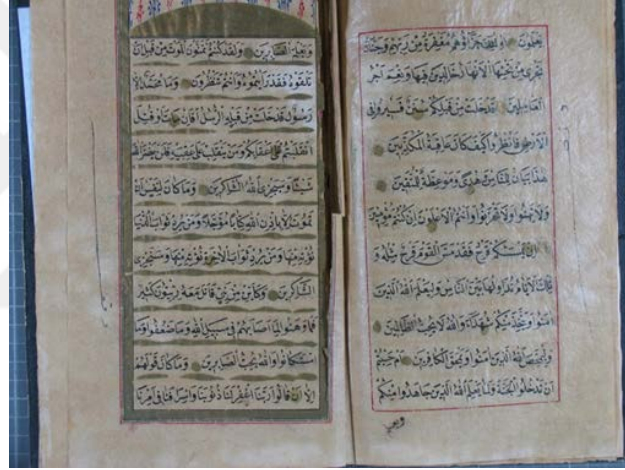 يعلمون اولئك جزاؤهم مغفرة من ربهم وجنات
تجرى من تحتها الانهار خالدين فيها ونعم اجر
العاملين قد خلت من قبلكم سنن فسيروا فى
الارض فانظروا كيف كان عاقبة المكذبين
هذا بيان للناس وهدى وموعظة للمتقين
ولا تهنوا ولا تحزنوا وانتم الاعلون ان كنتم مؤمنين
ان يمسسكم قرح فقد مس القوم قرح مثله و
تلك الايام نداولها بين الناس وليعلم الله الذين
امنوا ويتخذ منكم شهداء والله لا يحب الظالمين
وليمحص الله الذين امنوا ويمحق الكافرين ام حسبتم
ان تدخلوا الجنة ولما يعلم الله الذين جاهدوا منكم
ويعلم
ويعلم الصابرين ولقد كنتم تمنون الموت من قبل ان
تلقوه فقد رايتموه وانتم تنظرون وما محمد الا
رسول قد خلت من قبله الرسل افان مات او قتل
انقلبتم على اعقابكم ومن ينقلب على عقبيه فلن يضر الله
شيئا وسيجزى الله الشاكرين وما كان لنفس ان
تموت الا باذن الله كتابا مؤجلا ومن يرد ثواب الدنيا
نؤته منها ومن يرد ثواب الاخرة نؤته منها وسنجزى
الشاكرين وكاين من نبى قاتل معه ربيون كثير
فما وهنوا لما اصابهم فى سبيل الله وما ضعفوا وما
استكانوا والله يحب الصابرين وما كان قولهم
الا ان قالوا ربنا اغفر لنا ذنوبنا واسرافنا فى امرنا